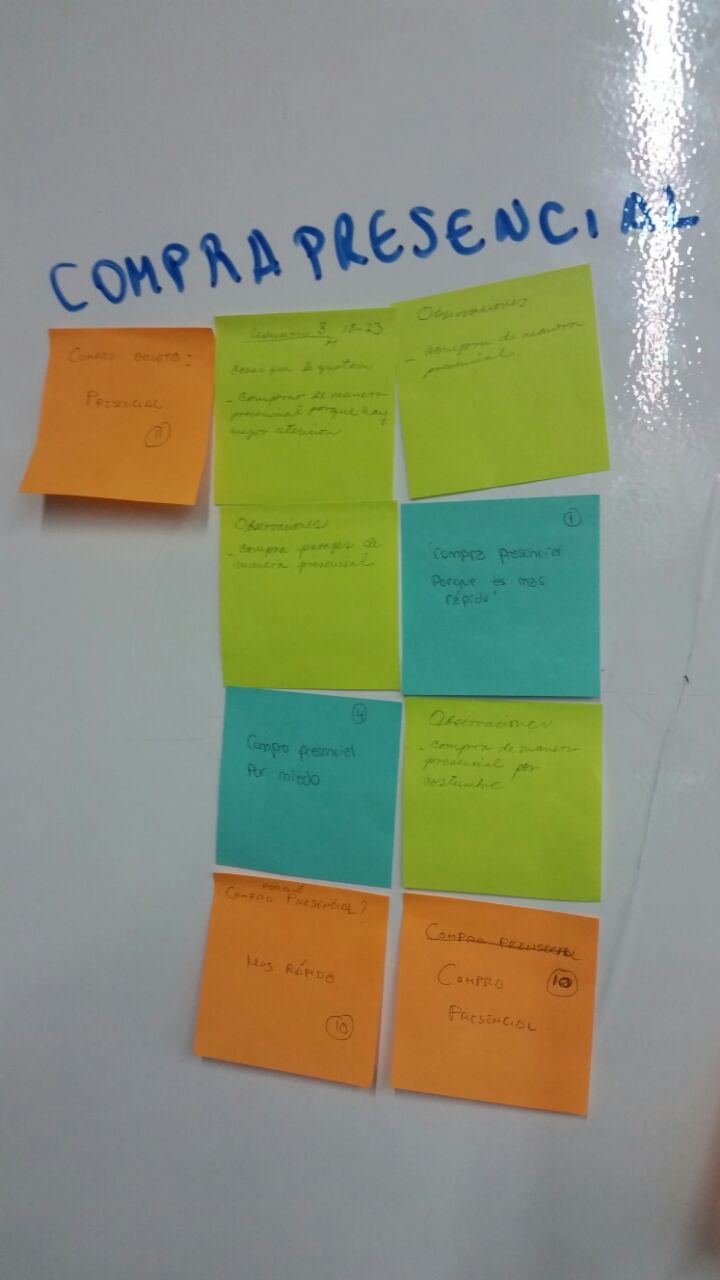 COMPRA PRESENCIAL
COMPRO BOLETO:
PRESENCIAL
11
3 18-23
cosas que le gustan
- comprar de manera
presencial porque hay
mejor atención
Observaciones
- compra de manera
presencial.
Observaciones
- compra pasajes de
manera presencial
1
"Compra presencial
Porque es mas
rápido"
4
Compro presencial
Por miedo
Observaciones
- compra de manera
presencial por
costumbre
PORQUE
COMPRO PRESENCIAL?
MAS RÁPIDO
10
COMPRO
10
PRESENCIAL.